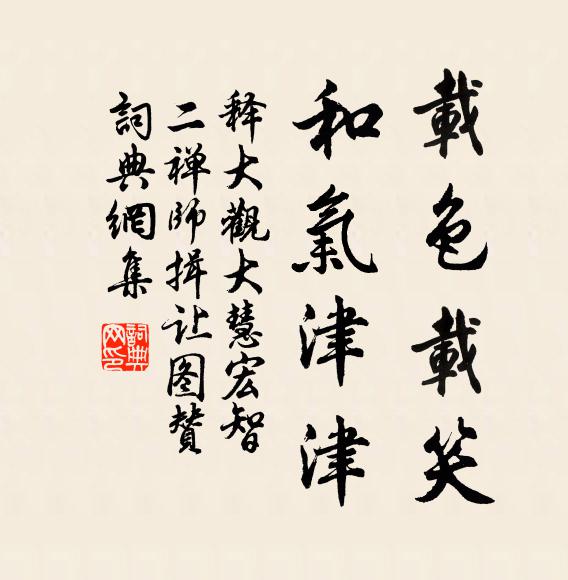 載色載笑
和氣津津
释大觀大慧宏智
二禅師揖让图贊
詞典網集
詞典網印